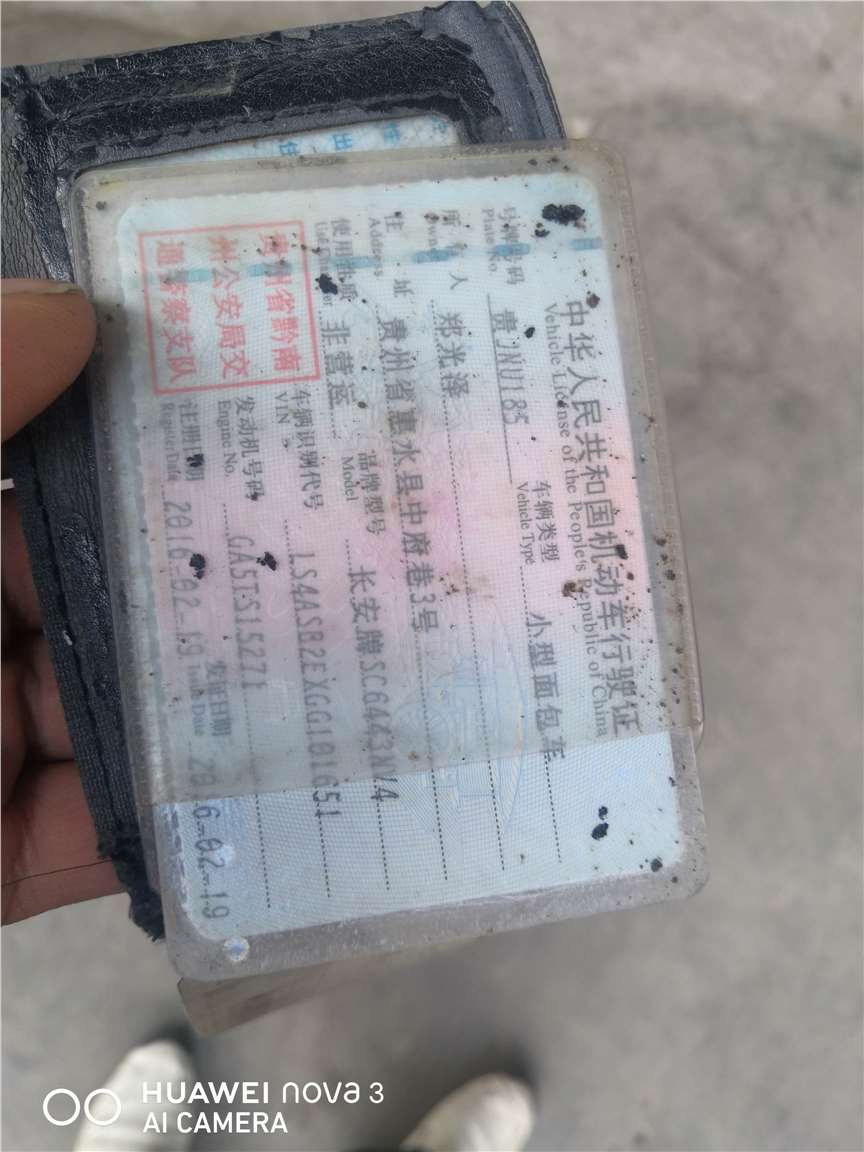 中华人民共和国机动车行驶证
Vehicle License of the People's Republic of China
号牌号码 贵JNU185 车辆类型 小型面包车
Plate No. Vehicle Type
所有人 郑光泽
Owner
住址 贵州省惠水县中府巷3号
Address
使用性质 非营运 品牌型号 长安牌SC6443NV4
Use Character Model
车辆识别代号 LS4ASB2EXGG101651
VIN
发动机号码 GA5TS15271
Engine No.
注册日期 2016-02-19 发证日期 2016-02-19
Register Date Issue Date
贵州省黔南
州公安局交
通警察支队
住
出
HUAWEI nova 3
AI CAMERA